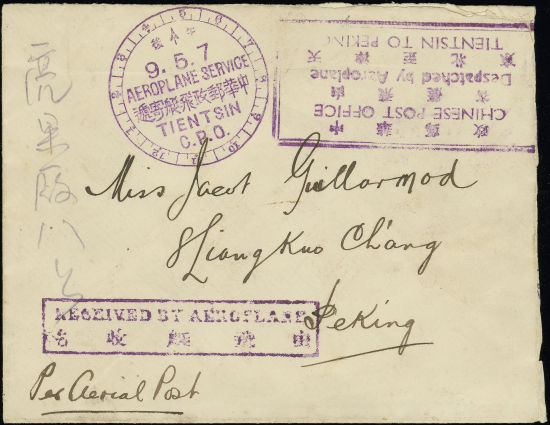 午後
9.5.7
AEROPLANE SERVICE
中華郵政飛艇寄遞
TIENTSIN
C.P.O.
CHINESE POST OFFICE
Despatched by Aeroplane
TIENTSIN TO PEKING
Miss Jacot Guillarmod
8 Liang Kuo Ch'ang
Peking
RECEIVED BY AEROPLANE
Per Aerial Post